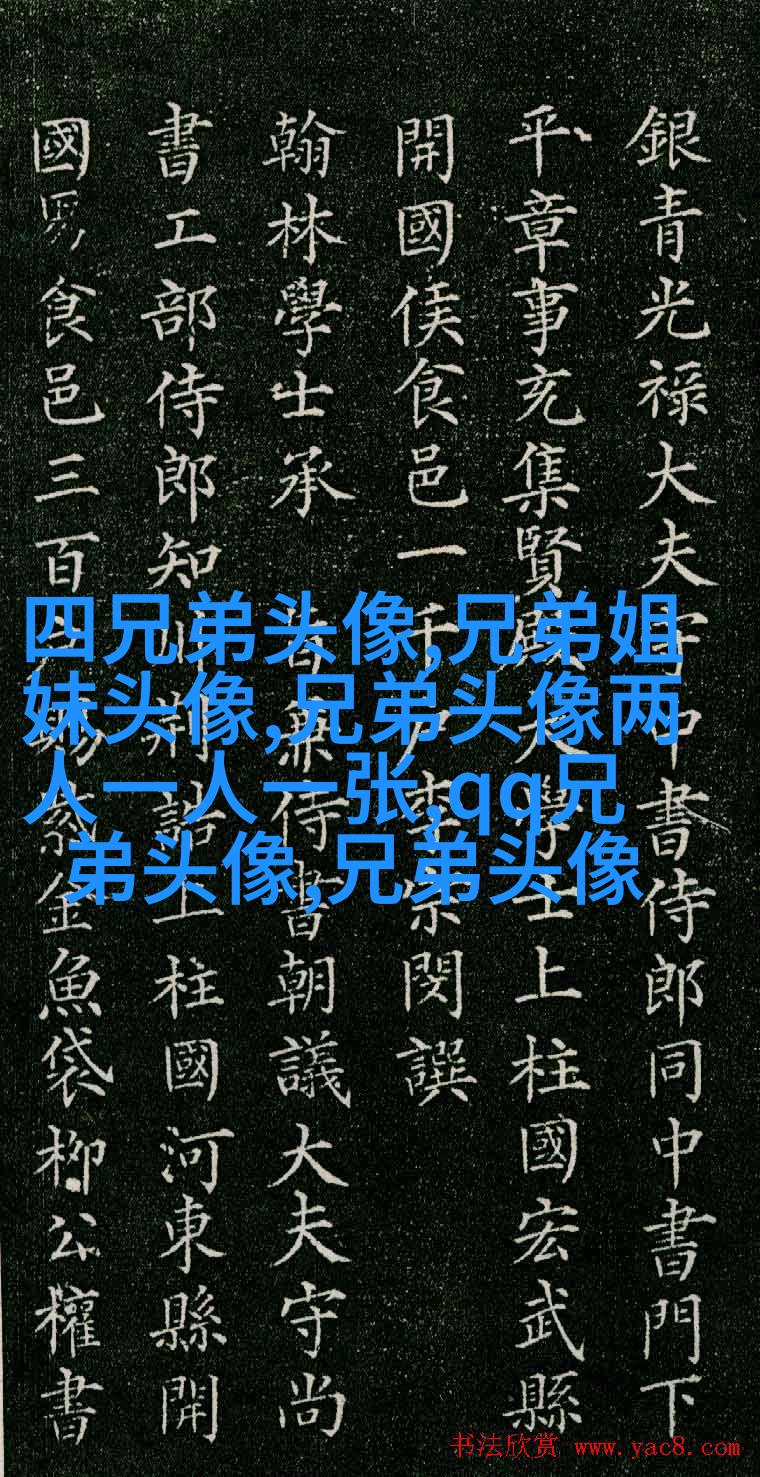 銀青光禄大夫守中書侍郎同中書門下
平章事充集賢殿大學士上柱國宏武縣
開國侯食邑一千戶李宗閔譔
翰林學士承旨兼侍書朝議大夫守尚
書工部侍郎知制誥上柱國河東縣開
國男食邑三百戶賜紫金魚袋柳公權書
四兄弟头像,兄弟姐
妹头像,兄弟头像两
人一人一张,qq兄
弟头像,兄弟头像
书法欣赏 www.yac8.com